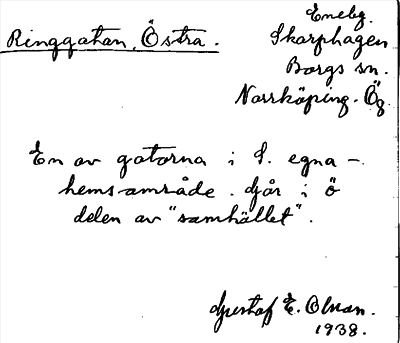 Ringgatan, Östra.
Enebg.
Skarphagen
Borgs sn.
Norrköping. Ög.
En av gatorna i S. egna-
hemsområde. Går i ö
delen av "samhället".
Gustaf E. Olsson.
1938.